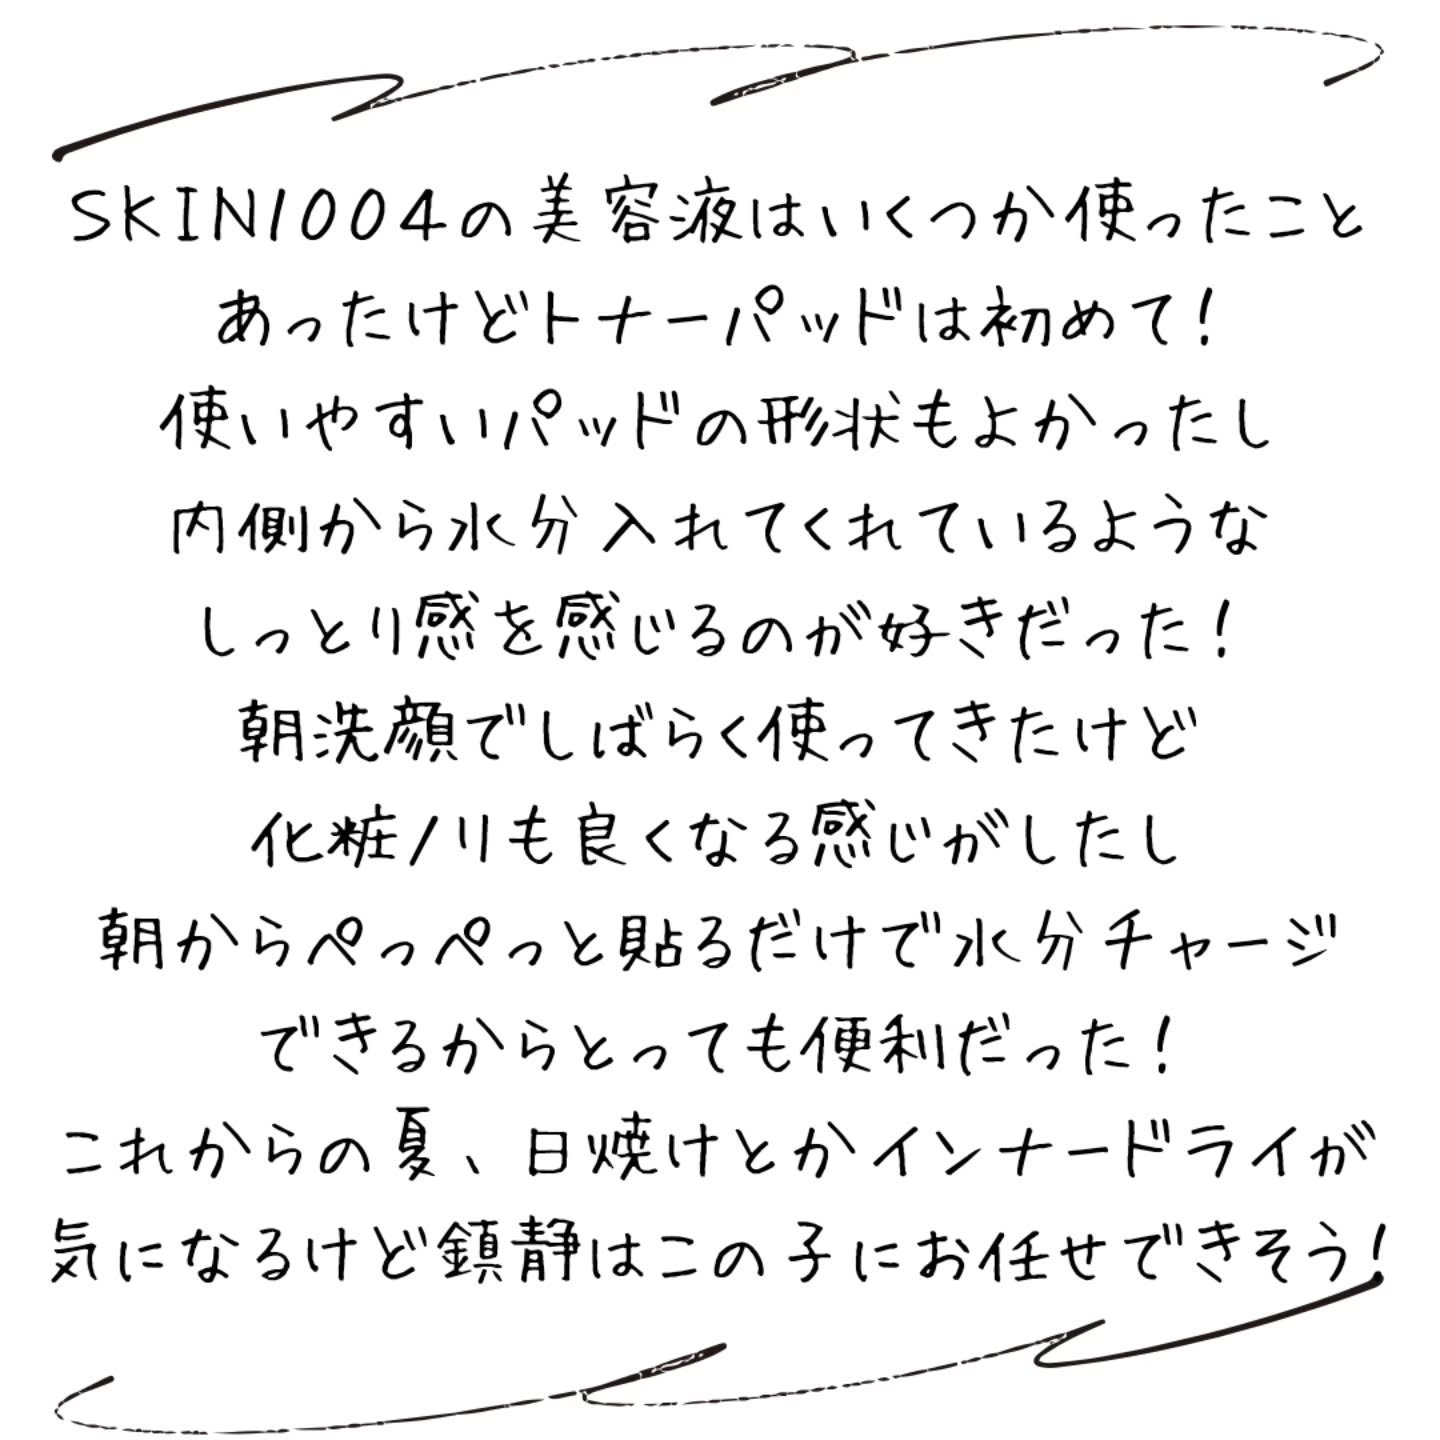 SKIN1004の美容液はいくつか使ったこと
あったけどトナーパッドは初めて!
使いやすいパッドの形状もよかったし
内側から水分入れてくれているような
しっとり感を感じるのが好きだった!
朝洗顔でしばらく使ってきたけど
化粧ノリも良くなる感じがしたし
朝からぺっぺっと貼るだけで水分チャージ
できるからとっても便利だった!
これからの夏、日焼けとかインナードライが
気になるけど鎮静はこの子にお任せできそう!